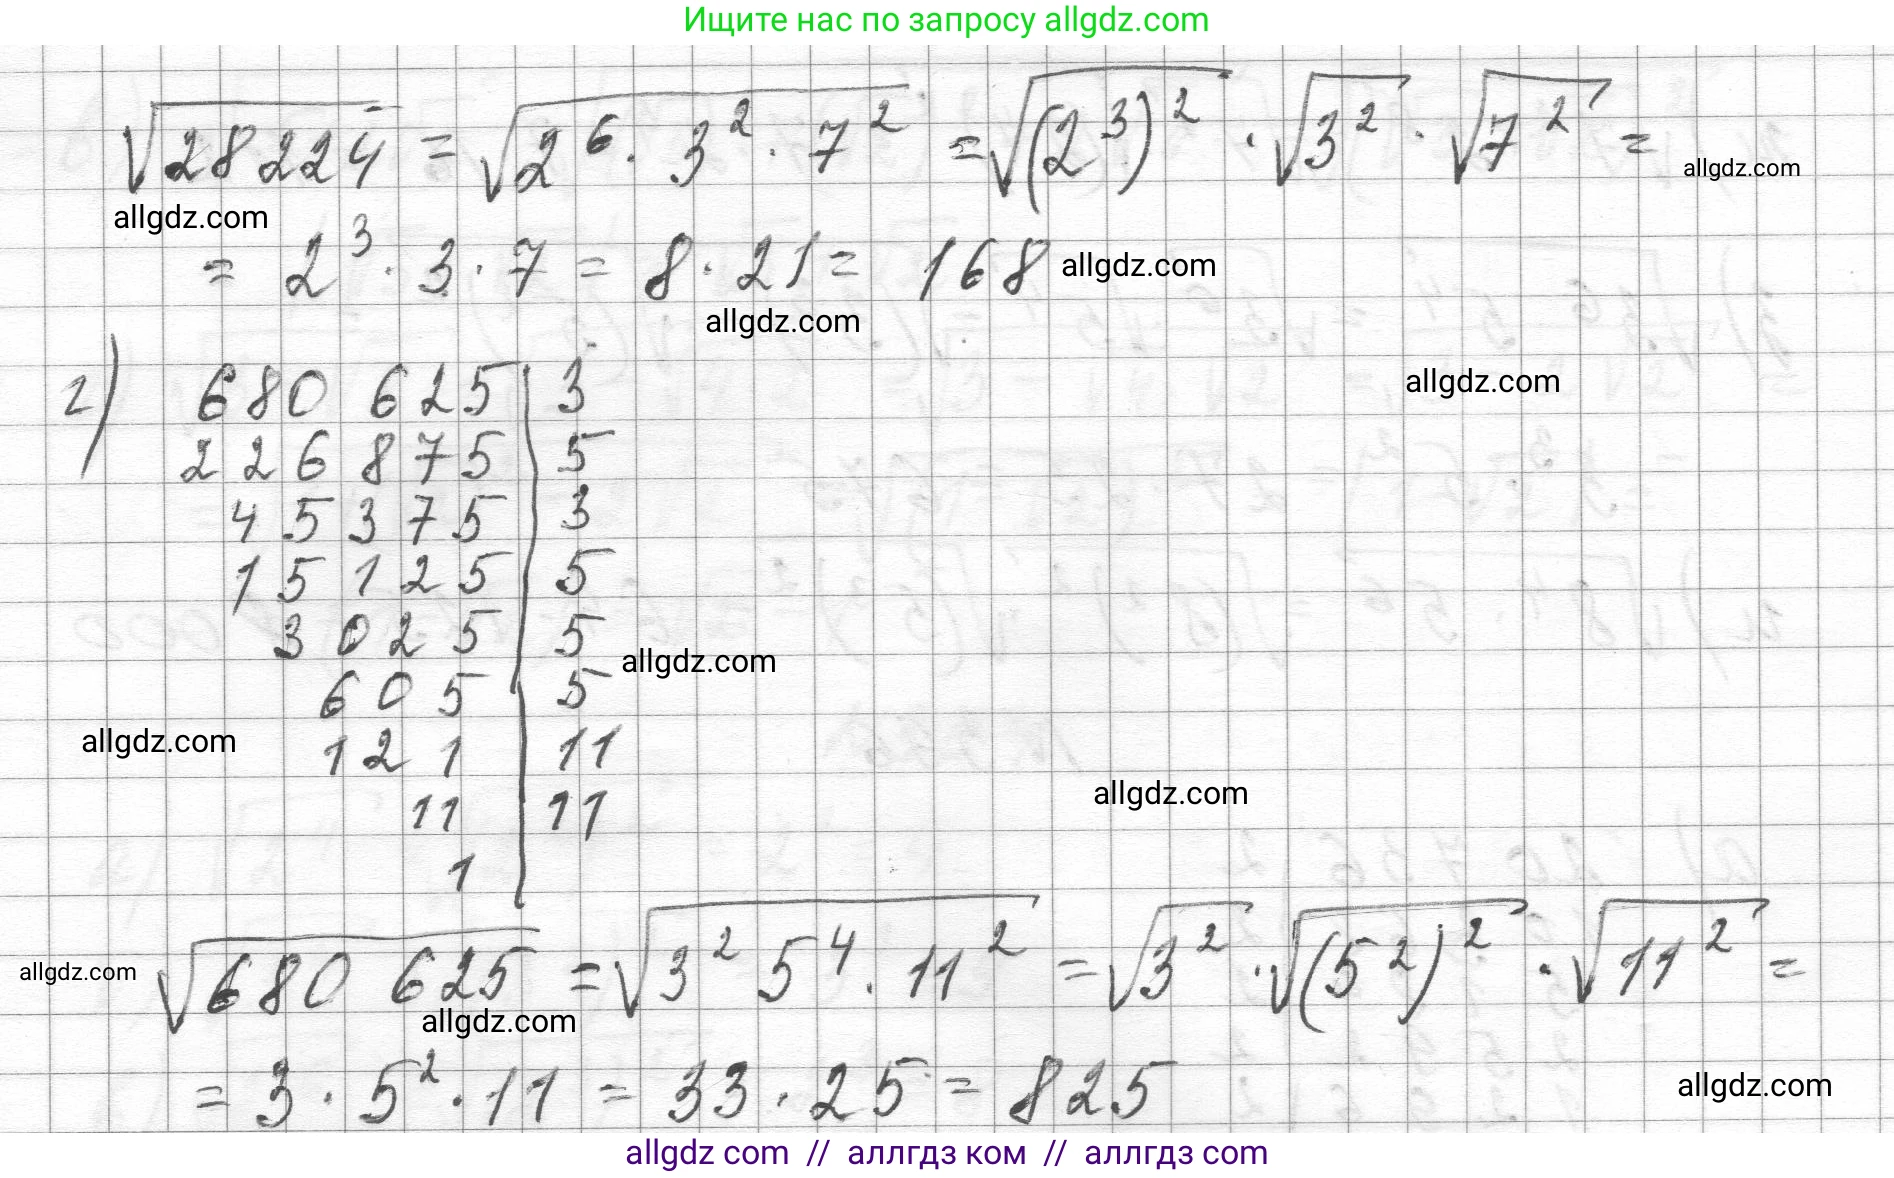 Ищите нас по запросу allgdz.com
√28224 = √2⁶ · 3² · 7² = √(2³)² · √3² · √7² =
allgdz.com
allgdz.com
= 2³ · 3 · 7 = 8 · 21 = 168
allgdz.com
allgdz.com
г) 680 625 | 3
allgdz.com
226 875 | 5
45375 | 3
15125 | 5
3025 | 5
allgdz.com
605 | 5
allgdz.com
121 | 11
allgdz.com
11 | 11
1
allgdz.com
√680 625 = √3² 5⁴ · 11² = √3² · √(5²)² · √11² =
allgdz.com
= 3 · 5² · 11 = 33 · 25 = 825
allgdz.com
allgdz com // аллгдз ком // аллгдз com